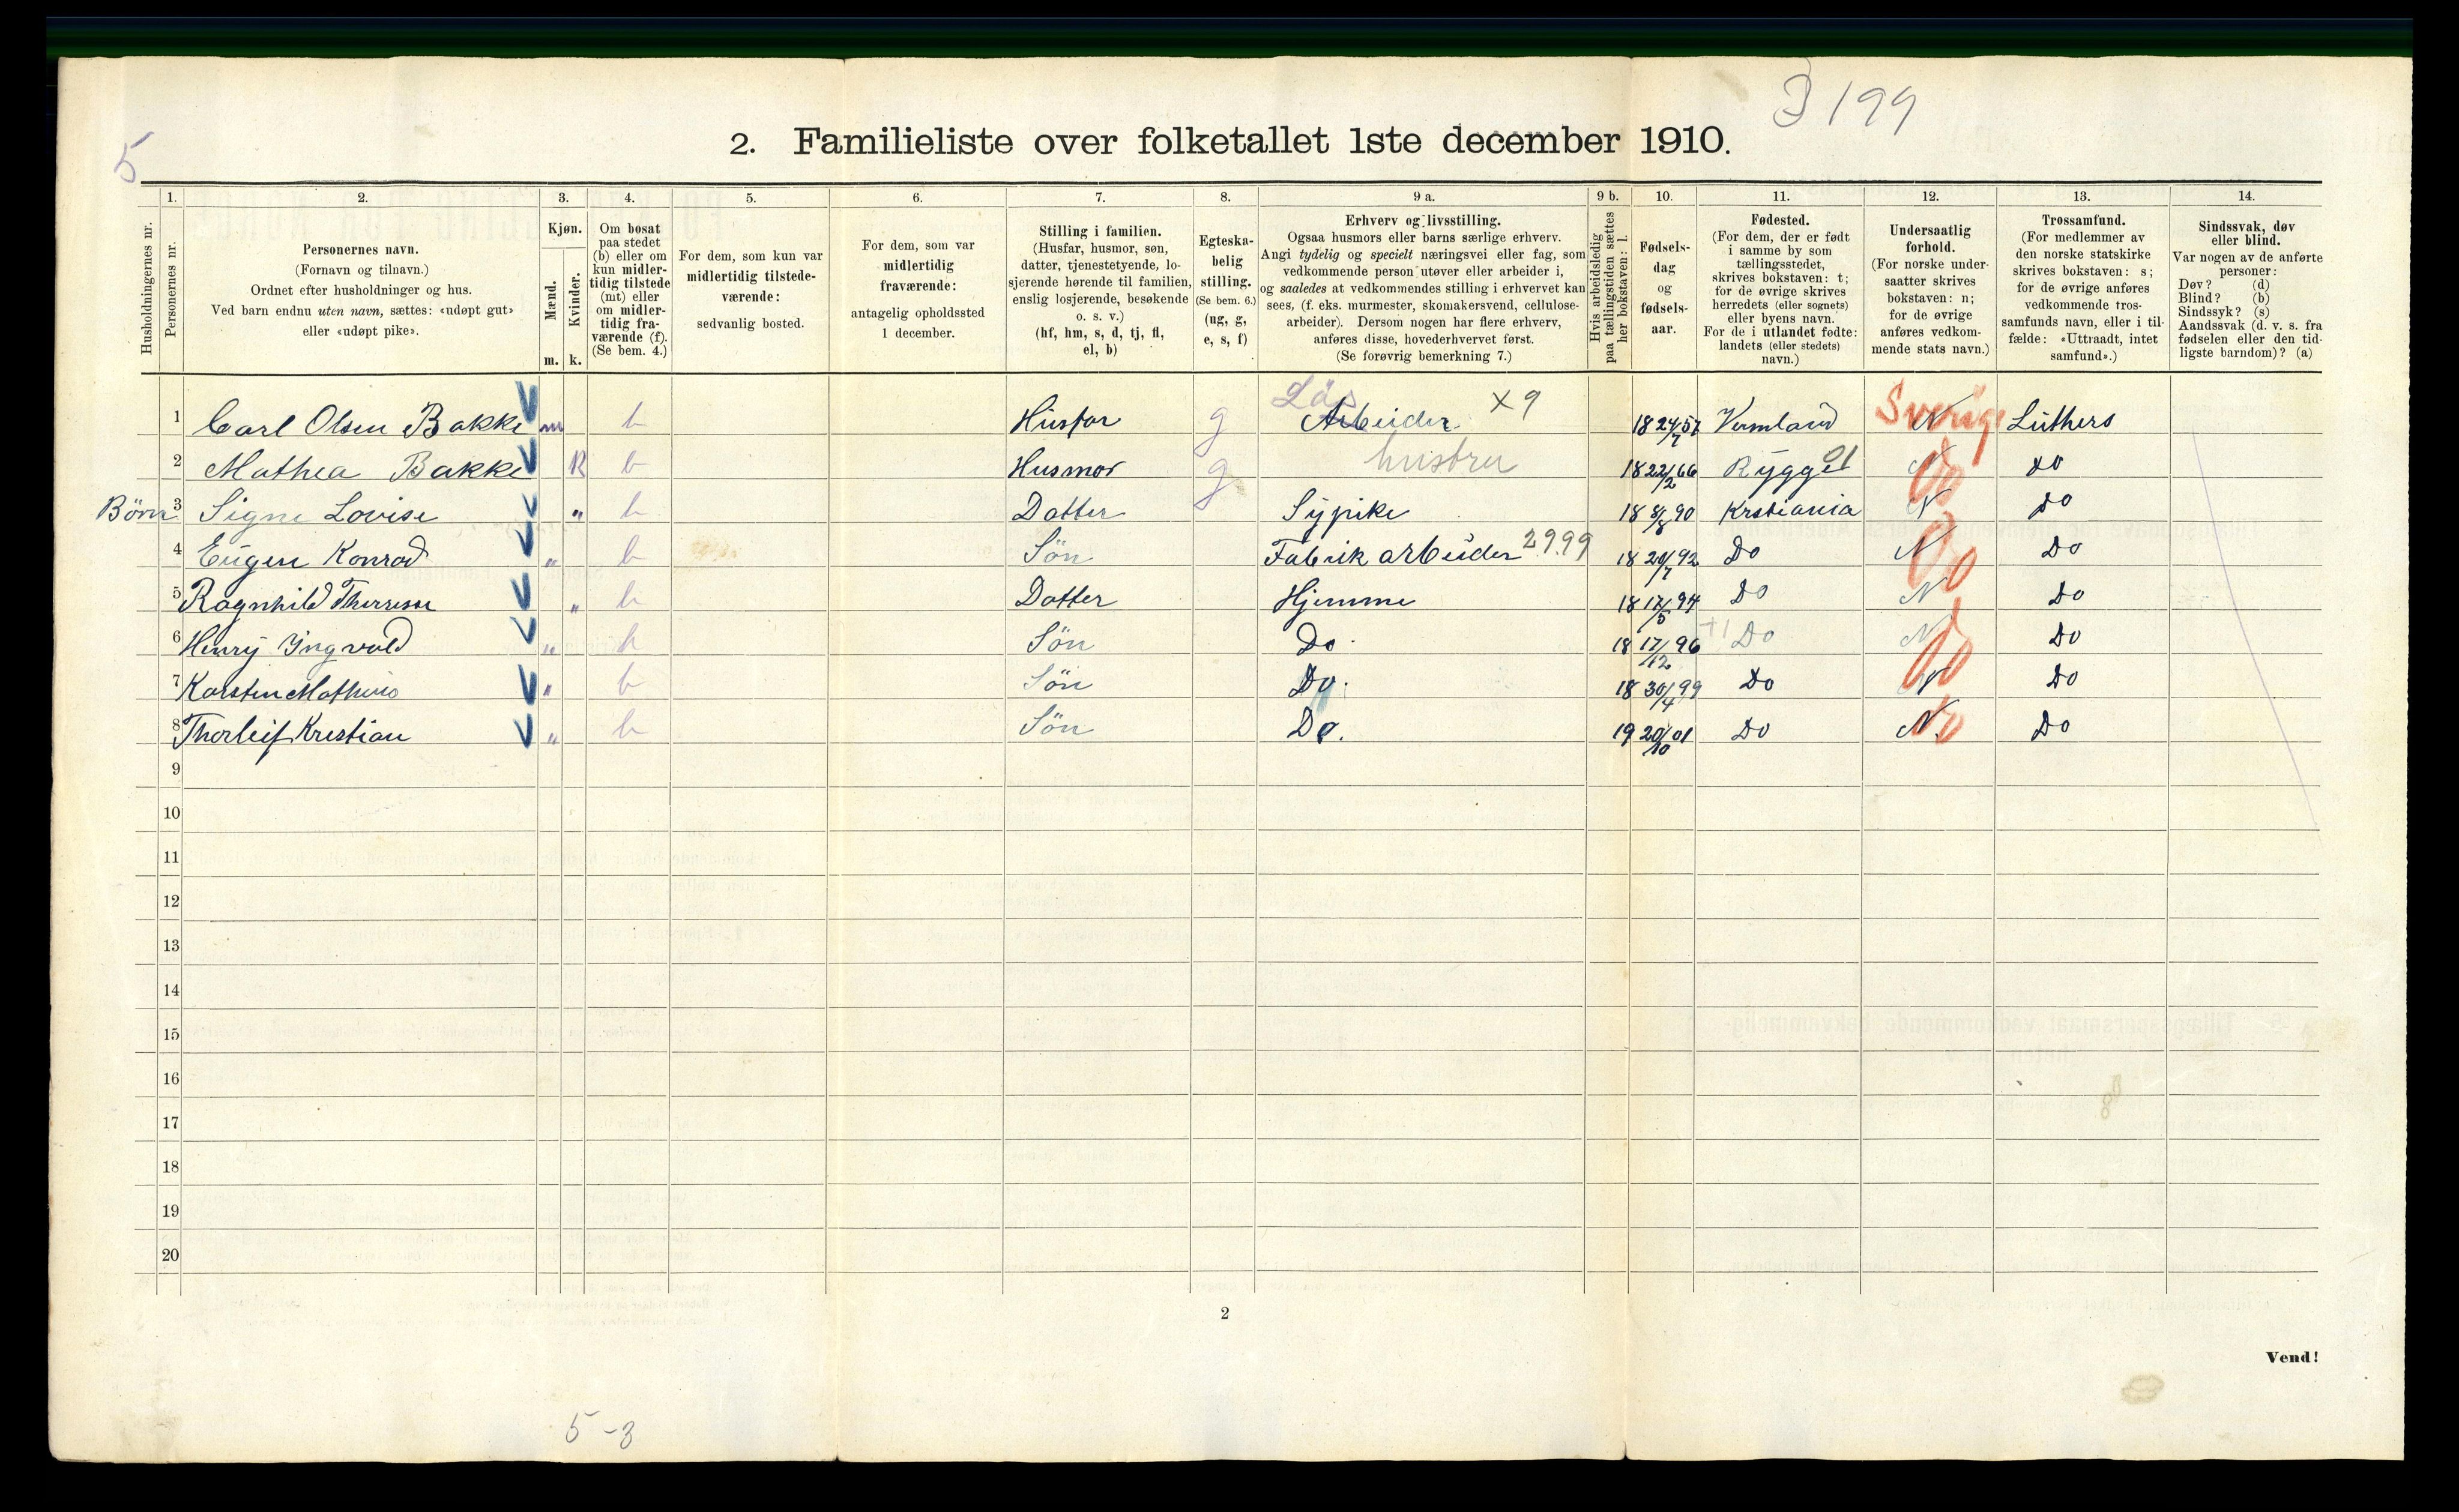 3199
2. Familieliste over folketallet 1ste december 1910.
5
Husholdningernes nr.
1. Personernes nr.
2. Personernes navn.
(Fornavn og tilnavn.)
Ordnet efter husholdninger og hus.
Ved barn endnu uten navn, sættes: «udøpt gut»
eller «udøpt pike».
3. Kjøn.
Mænd. m.
Kvinder. k.
4. Om bosat
paa stedet
(b) eller om
kun midler-
tidig tilstede
(mt) eller
om midler-
tidig fra-
værende (f).
(Se bem. 4.)
5. For dem, som kun var
midlertidig tilstede-
værende:
sedvanlig bosted.
6. For dem, som var
midlertidig
fraværende:
antagelig opholdssted
1 december.
7. Stilling i familien.
(Husfar, husmor, søn,
datter, tjenestetyende, lo-
sjerende hørende til familien,
enslig losjerende, besøkende
o. s. v.)
(hf, hm, s, d, tj, fl,
el, b)
8. Egteska-
belig
stilling.
(Se bem. 6.)
(ug, g,
e, s, f)
9 a. Erhverv og livsstilling.
Ogsaa husmors eller barns særlige erhverv.
Angi tydelig og specielt næringsvei eller fag, som
vedkommende person utøver eller arbeider i,
og saaledes at vedkommendes stilling i erhvervet kan
sees, (f. eks. murmester, skomakersvend, cellulose-
arbeider). Dersom nogen har flere erhverv,
anføres disse, hovederhvervet først.
(Se forøvrig bemerkning 7.)
9 b. Hvis arbeidsledig
paa tællingstiden sættes
her bokstaven: l.
10. Fødsels-
dag
og
fødsels-
aar.
11. Fødested.
(For dem, der er født
i samme by som
tællingsstedet,
skrives bokstaven: t;
for de øvrige skrives
herredets (eller sognets)
eller byens navn.
For de i utlandet fødte:
landets (eller stedets)
navn.)
12. Undersaatlig
forhold.
(For norske under-
saatter skrives
bokstaven: n;
for de øvrige
anføres vedkom-
mende stats navn.)
13. Trossamfund.
(For medlemmer av
den norske statskirke
skrives bokstaven: s;
for de øvrige anføres
vedkommende tros-
samfunds navn, eller i til-
fælde: «Uttraadt, intet
samfund».)
14. Sindssvak, døv
eller blind.
Var nogen av de anførte
personer:
Døv? (d)
Blind? (b)
Sindssyk? (s)
Aandssvak (d. v. s. fra
fødselen eller den tid-
ligste barndom)? (a)
1 Carl Olsen Bakke m b Husfar g Løs Arbeider x9 18 24/7 57 Vermland N Sverige Luthers
2 Mathea Bakke K b Husmor g hustru 18 22/2 66 Rygge 01 N Do Do
Börn 3 Signe Lovise " b Datter Sypike 18 8/8 90 Krstiania N Do
4 Eugen Konrad " b Sön Fabrik arbeider 2999 18 20/7 92 Do N Do Do
5 Ragnhild Therese " b Datter Hjemme 18 17/5 94 Do N Do
6 Henry Ingvald " b Sön Do 18 17/12 96 Do N Do Do
7 Karsten Mathius " b Sön Do. 18 30/4 99 Do N Do
8 Thorleif Krestian " b Sön Do. 19 20/10 01 Do N. Do Do
9
10
11
12
13
14
15
16
17
18
19
20
2
Vend!
5-3